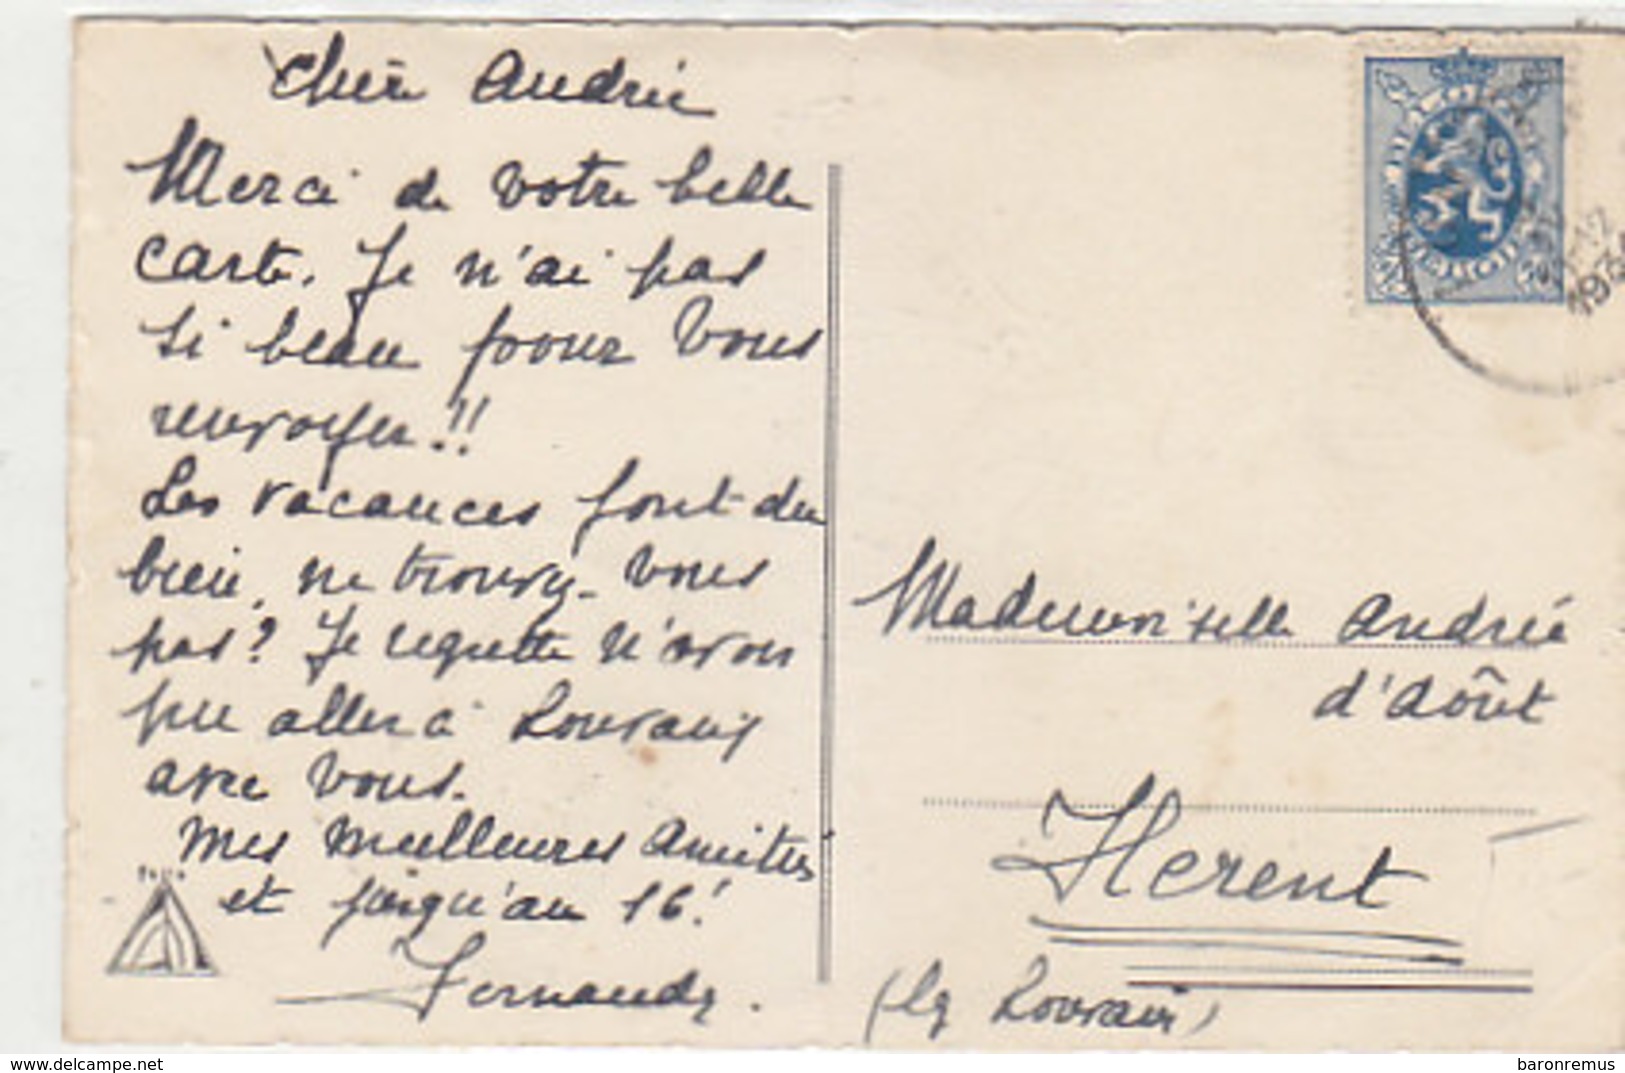 Chère Andrée
Merci de votre belle
carte. Je n'ai pas
si beau pour vous
renvoyer!!
Les vacances font du
bien, ne trouvez-vous
pas? Je regrette n'avoir
pu aller à Louvain
avec vous.
Mes meilleures Amitiés
et jusqu'au 16!
Fernande.
1931
Mademoiselle Andrée
d'Août
Herent
(lez Louvain)
delcampe.net
baronremus